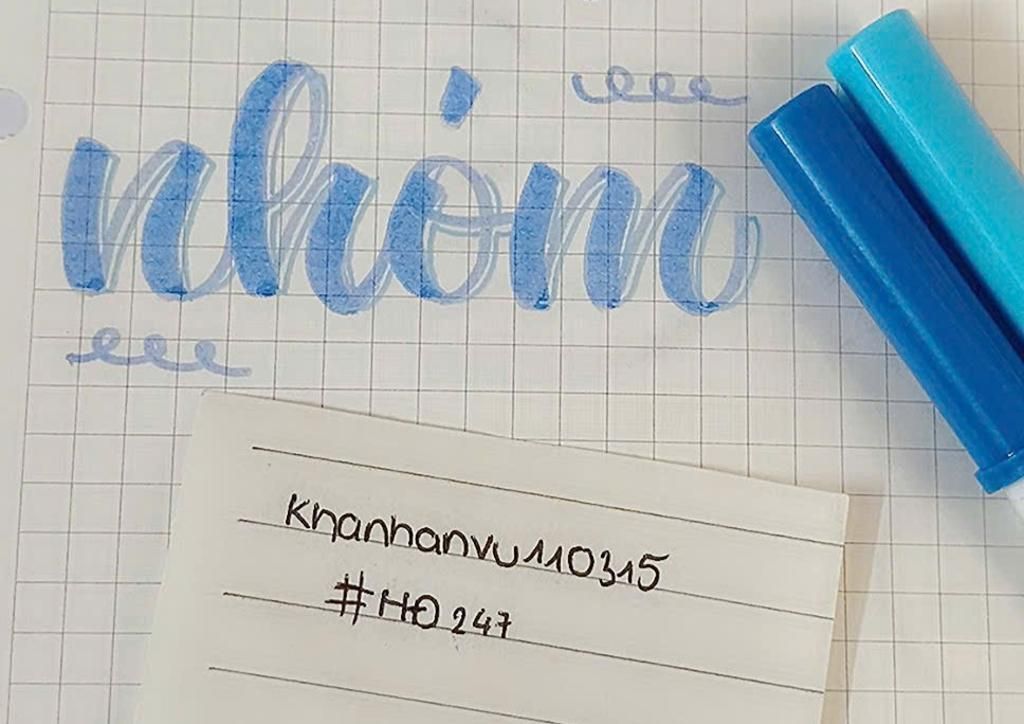 nhóm
Khanhanvu110315
#HO247